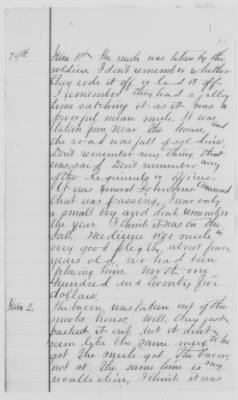 79th.
Item 1st. The mule was taken by the
soldiers, I don't remember whether
they rode it off or led it off
I remember they had a jolly
time catching it as it was a
powerful mean mule. It was
taken from near the house, and
the road was full of soldiers
Don't remember any thing that
was said. Don't remember any
of the regiments or officers.
It was General Johnsons Command
that was passing. I was only
a small boy and dont remember
the year. I think it was in the
fall. Medium size mule in
very good plight, about four
years old, we had been
plowing him. Worth one
hundred and twenty five
dollars.
Item 2. The bacon, was taken out of the
smoke house, Well, they just
packed it out, but it dont
seem like the same men who
got the mule got the bacon,
not at the same time is my
recollection, I think it was